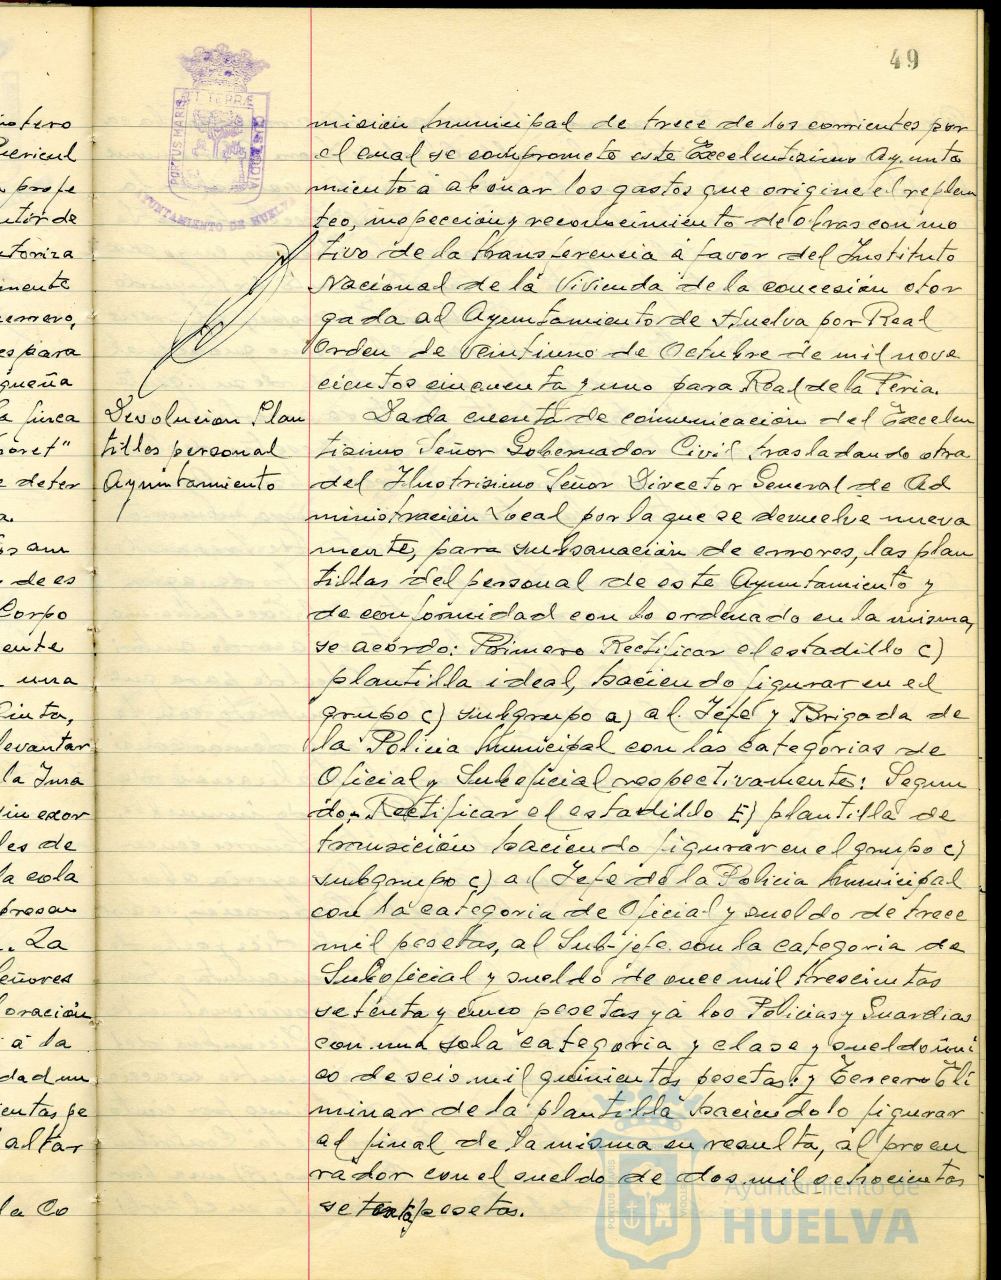 49
PORTUS MARIS ET TERRÆ CUSTODIA
AYUNTAMIENTO DE HUELVA
otero
Pericul
prope
utor de
utoriza
mente
errero,
es para
queña
la finca
oret"
e deter
a.
os am
de es
Corpo
ente
una
Cinta,
levantar
la Inma
sin exor
les de
la cola
presen
. La
eñores
oración
á la
dad un
ientas pe
altar
la Co
Devolucion Plan
tillas personal
Ayuntamiento
misión Municipal de trece de los corrientes por
el cual se compromete este Excelentísimo Ayunta
miento á abonar los gastos que origine el replan
teo, inspección y reconocimiento de obras con mo
tivo de la transferencia á favor del Instituto
Nacional de la Vivienda de la concesión otor
gada al Ayuntamiento de Huelva por Real
Orden de veintiuno de Octubre de mil nove
cientos cincuenta y uno para Real de la Feria.
Dada cuenta de comunicación del Excelen
tísimo Señor Gobernador Civil trasladando otra
del Ilustrísimo Señor Director General de Ad
ministración Local por la que se devuelve nueva
mente, para subsanación de errores, las plan
tillas del personal de este Ayuntamiento y
de conformidad con lo ordenado en la misma,
se acordó: Primero Rectificar el estadillo C)
plantilla ideal, haciendo figurar en el
grupo c) subgrupo a) al Jefe y Brigada de
la Policía Municipal con las categorías de
Oficial y Suboficial respectivamente: Segun
do.- Rectificar el estadillo E) plantilla de
transición haciendo figurar en el grupo c)
subgrupo c) al Jefe de la Policía Municipal
con la categoría de Oficial y sueldo de trece
mil pesetas, al Sub-jefe con la categoría de
Suboficial y sueldo de once mil trescientas
setenta y cinco pesetas y á los Policías y Guardias
con una sola categoría y clase y sueldo úni
co de seis mil quinientas pesetas: y Tercero Eli
minar de la plantilla haciéndolo figurar
al final de la misma en resulta, al procu
rador con el sueldo de dos mil ochocientas
setenta pesetas.
Ayuntamiento de
HUELVA